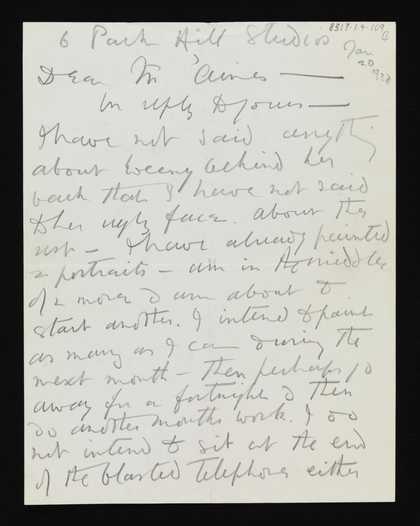 8317.1.4.109
6 Park Hill Studios
Jan
20
Dear Mr 'Aimes —
In reply to yours —
I have not said anything
about behind her
back that I have not said
to her ugly face. About the
rest — I have already painted
2 portraits — am in middle
of 2 more & am about to
start another. I intend to paint
as many as I can during the
next month — then perhaps go
away for a fortnight & then
do another months work. I do
not intend to sit at the end
of the blasted telephone either